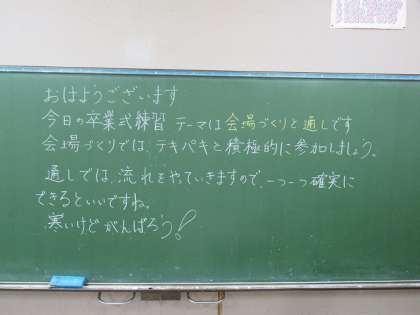 おはようございます
今日の卒業式練習 テーマは会場づくりと通しです
会場づくりでは、テキパキと積極的に参加しましょう。
通しでは、流れをやっていきますので、一つ一つ確実に
できるといいですね。
寒いけどがんばろう!